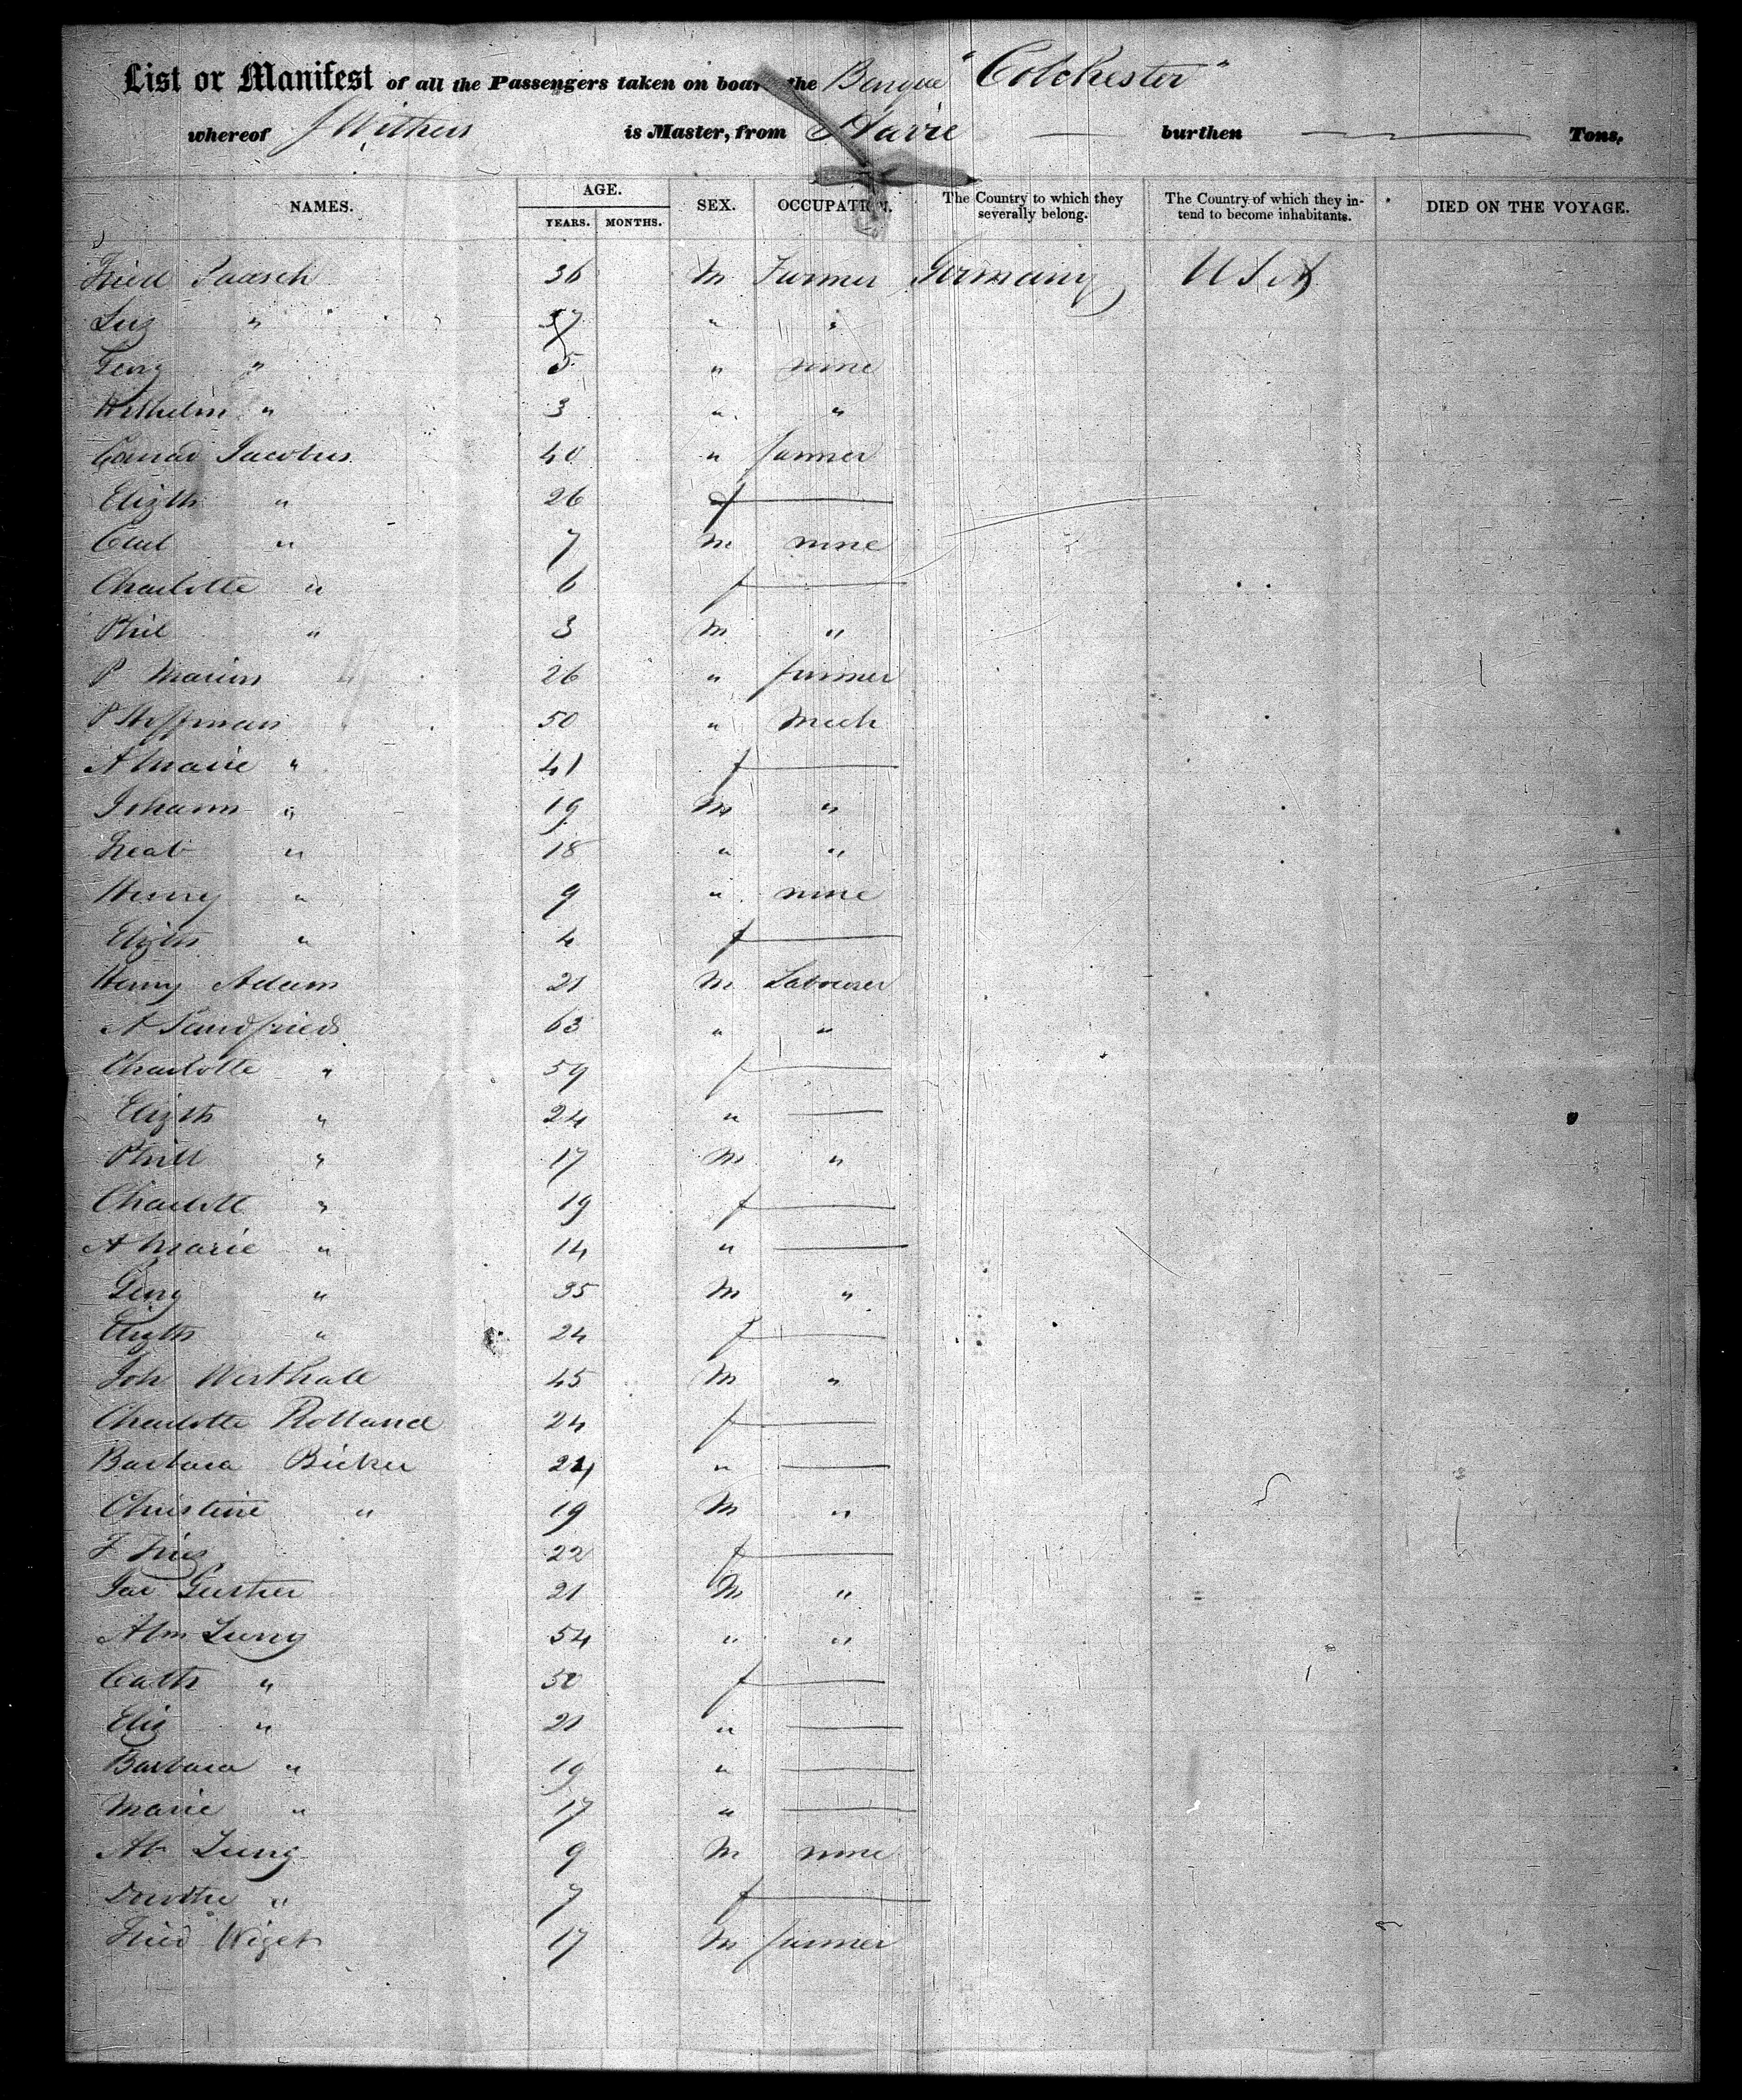 List or Manifest of all the Passengers taken on board the Barque "Colchester"
whereof J Withers is Master, from Havre burthen Tons,
NAMES. AGE. YEARS. MONTHS. SEX. OCCUPATION. The Country to which they severally belong. The Country of which they intend to become inhabitants. DIED ON THE VOYAGE.
Fried Paasch 36 M Farmer Germany U S A
" 37 " "
Georg " 5 " none
Wilhelm " 3 " "
Conrad Jacobus 40 " farmer
Elizth " 26 f
Carl " 7 M none
Charlotte " 6 f
Phil " 3 M "
P 26 " farmer
P Hoffman 50 " Mech
A Marie " 41 f
Johann " 19 M "
" 18 " "
Henry " 9 " none
Elizth " 4 f
Henry Adam 21 M Labourer
A Landfried 63 " "
Charlotte " 59 f
Elizth " 24 "
Phill " 17 M "
Charlott " 19 f
A Marie " 14 "
Georg " 35 M "
Elizth " 24 f
Joh Westhall 45 M "
Charlotte Rolland 24 f
Barbara Bicker 24 "
Christine " 19 M "
F 22 f
Jac 21 M "
Abm Jung 54 " "
Cath " 50 f
Eliz " 21 "
Barbara " 19 "
Marie " 17 "
Ab Jung 9 M none
Dorothe " 7 f
Fried 17 M farmer